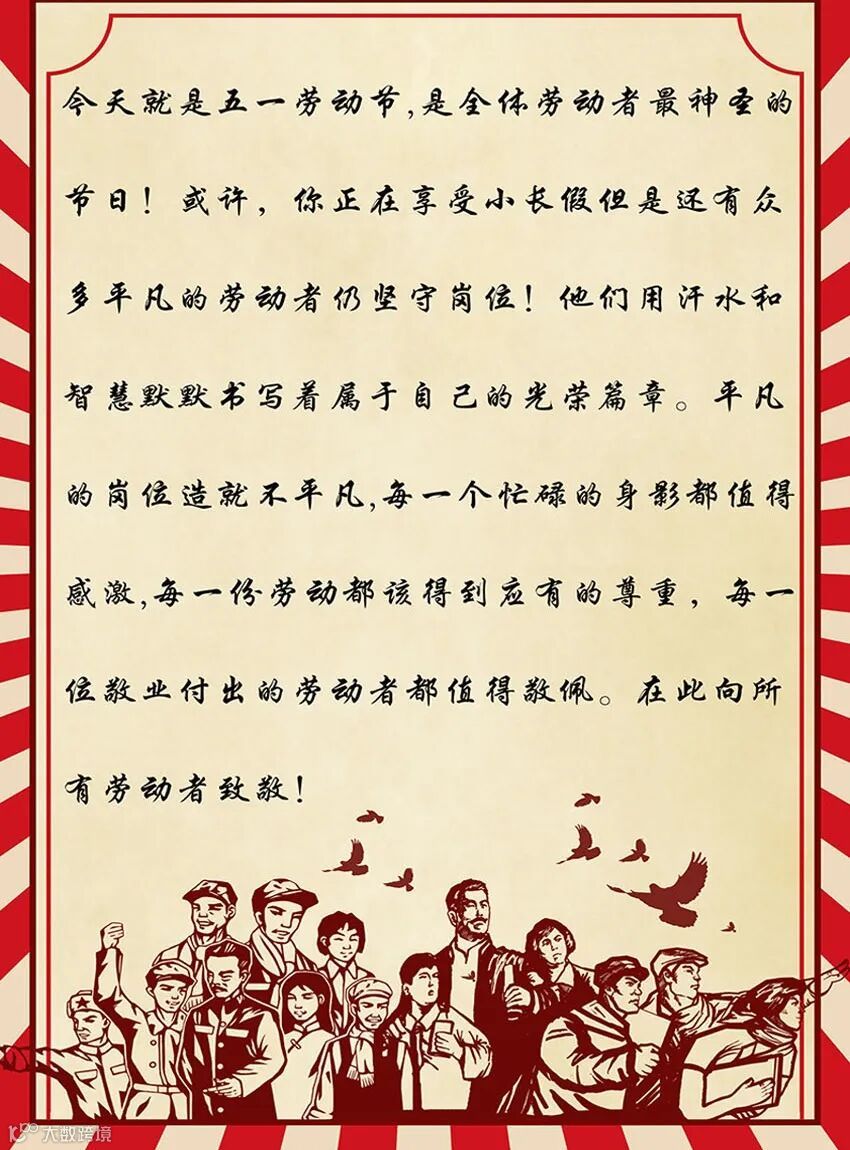 今天就是五一劳动节,是全体劳动者最神圣的
节日！或许，你正在享受小长假但是还有众
多平凡的劳动者仍坚守岗位！他们用汗水和
智慧默默书写着属于自己的光荣篇章。平凡
的岗位造就不平凡,每一个忙碌的身影都值得
感激,每一份劳动都该得到应有的尊重，每一
位敬业付出的劳动者都值得敬佩。在此向所
有劳动者致敬！
大数跨境